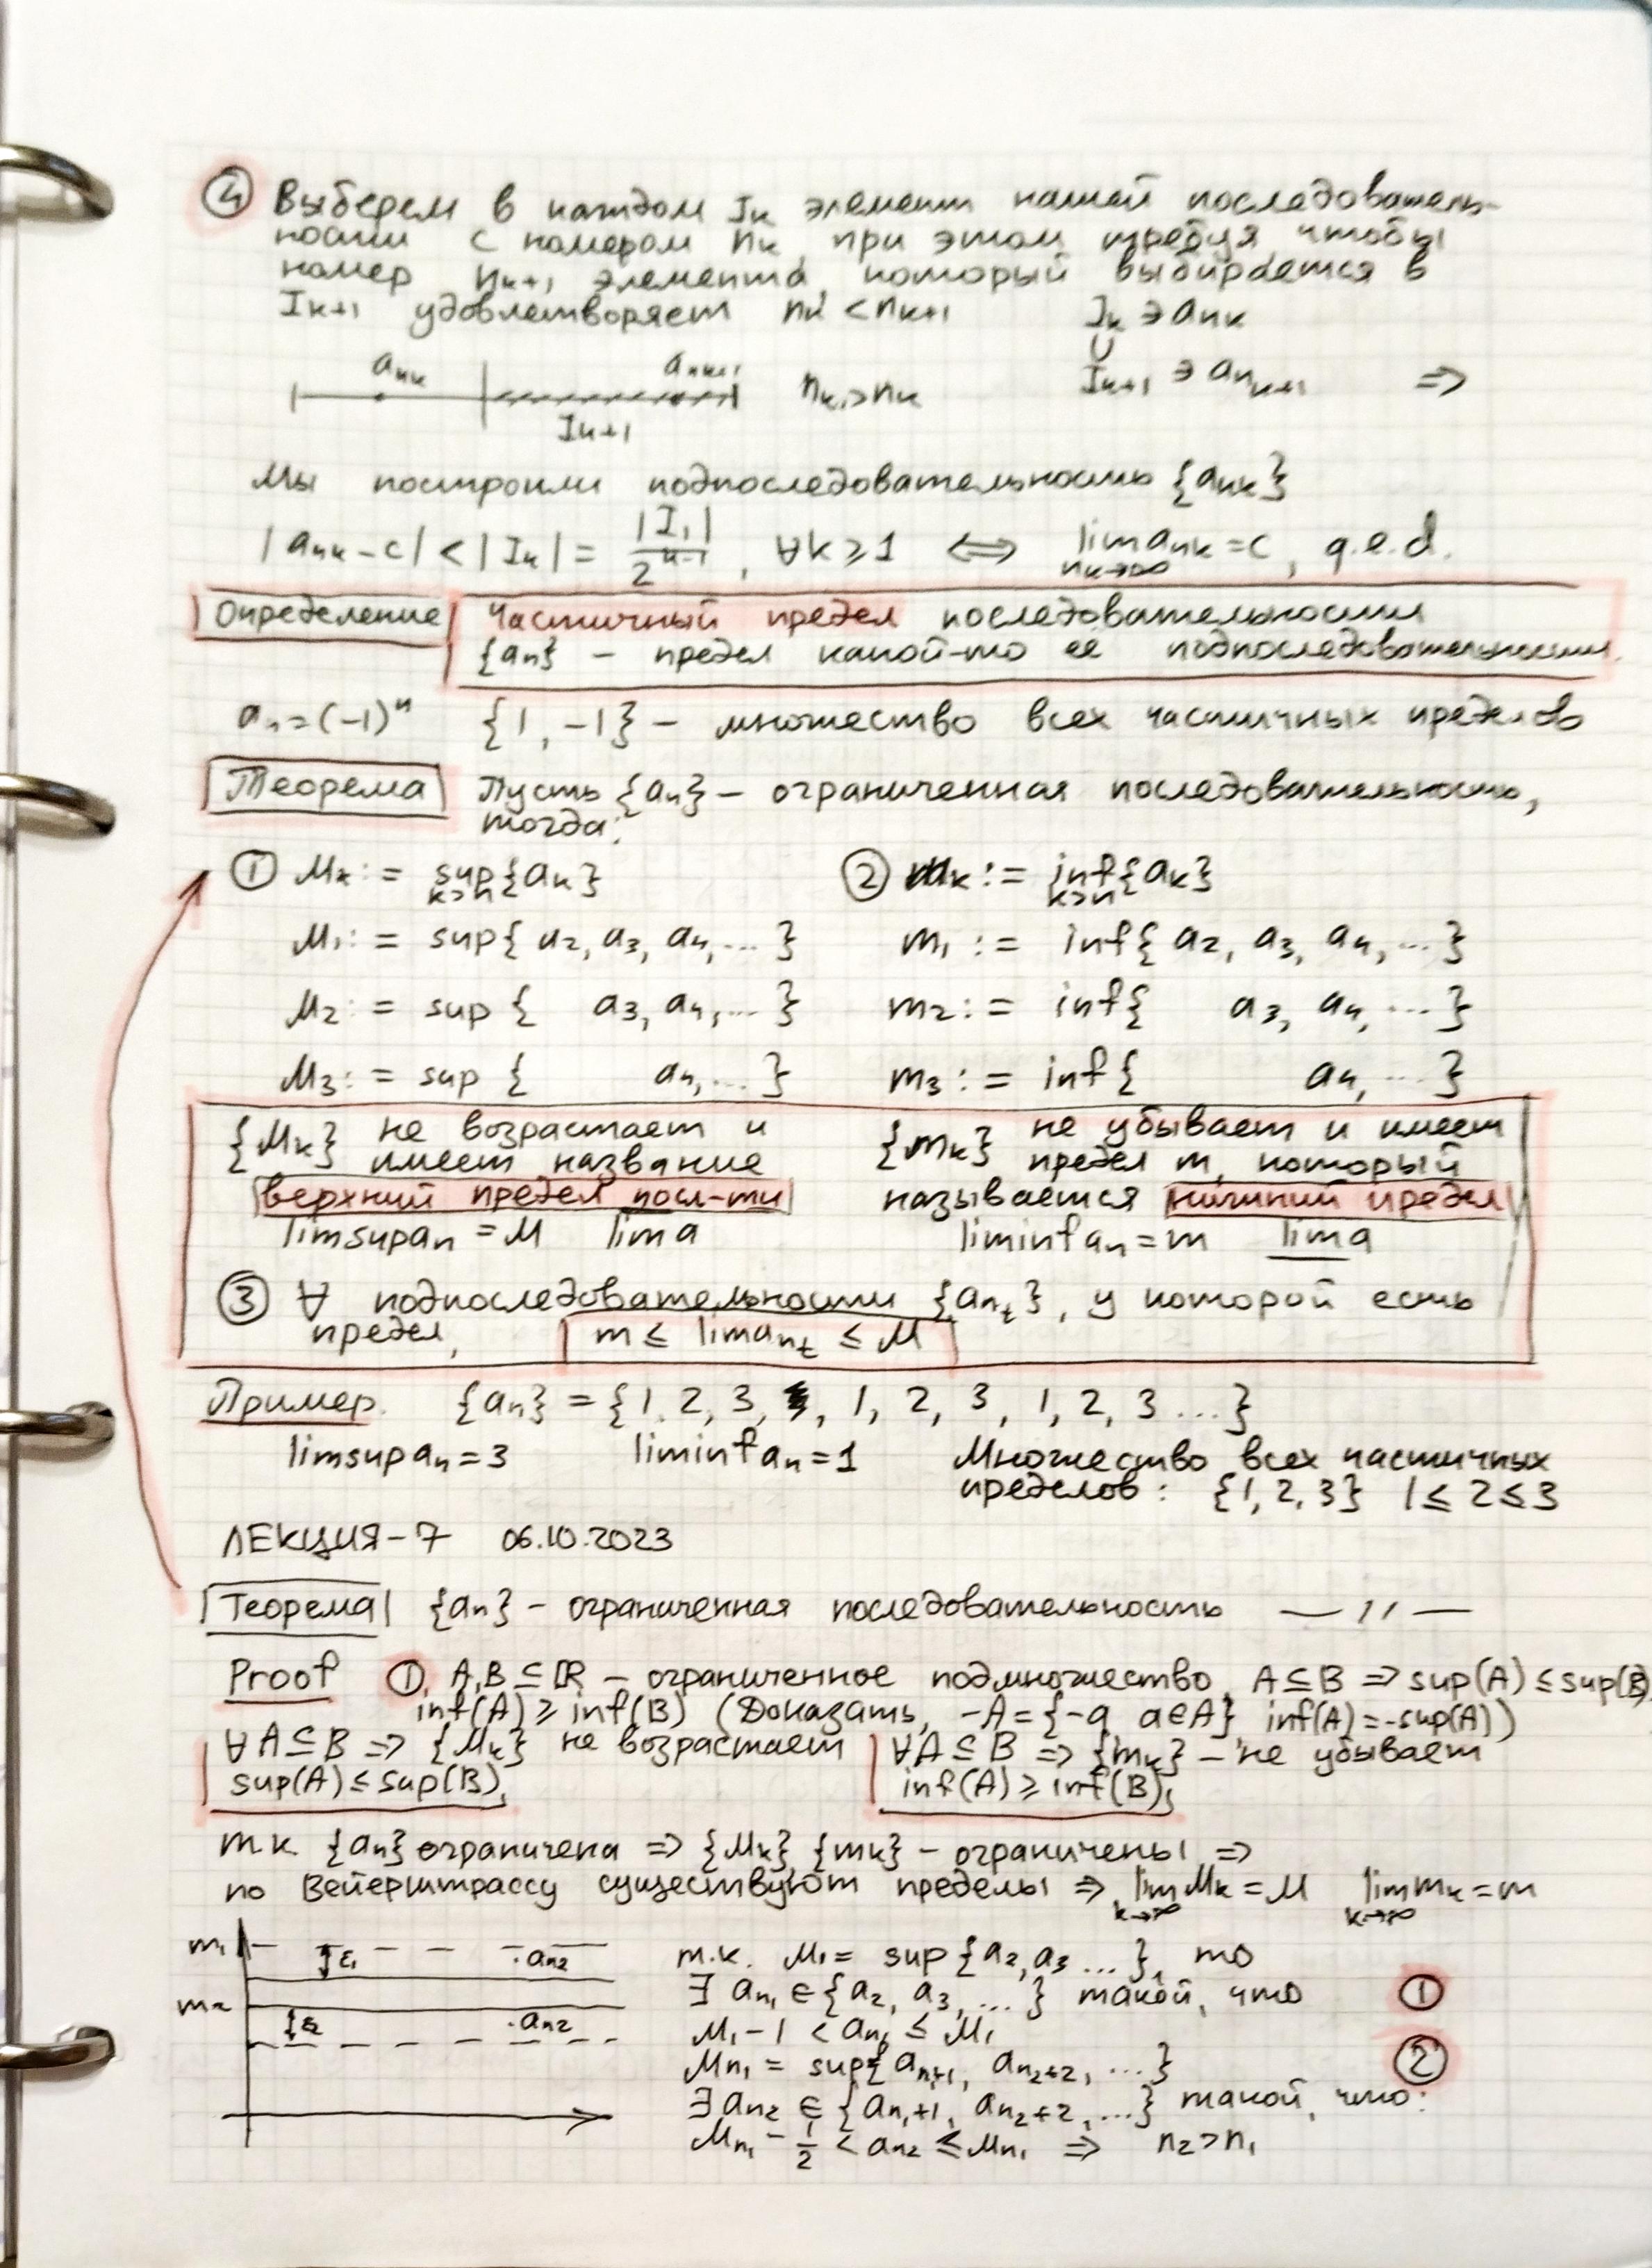 ④ Выберем в каждом Iₖ элемент нашей последователь-
ности с номером nₖ, при этом требуя чтобы
номер nₖ₊₁ элемента, который выбирается в
Iₖ₊₁ удовлетворяет nₖ < nₖ₊₁ Iₖ ∋ aₙₖ
∪
aₙₖ aₙₖ₊₁ nₖ₊₁>nₖ Iₖ₊₁ ∋ aₙₖ₊₁ ⇒
Iₖ₊₁
Мы построили подпоследовательность {aₙₖ}
|aₙₖ - c| < |Iₖ| = |I₁|/2ᵏ⁻¹, ∀k ⩾ 1 ⟺ lim aₙₖ = c, q.e.d.
nₖ→∞
Определение Частичный предел последовательности
{aₙ} - предел какой-то её подпоследовательности.
aₙ = (-1)ⁿ {1, -1} - множество всех частичных пределов
Теорема Пусть {aₙ} - ограниченная последовательность,
тогда:
① Mₖ := sup{aₖ} ② mₖ := inf{aₖ}
k>n k>n
M₁ := sup{a₂, a₃, a₄, ...} m₁ := inf{a₂, a₃, a₄, ...}
M₂ := sup{ a₃, a₄, ...} m₂ := inf{ a₃, a₄, ...}
M₃ := sup{ a₄, ...} m₃ := inf{ a₄, ...}
{Mₖ} не возрастает и {mₖ} не убывает и имеет
имеет название предел m, который
верхний предел посл-ти называется нижний предел
limsup aₙ = M l̅i̅m̅ a liminf aₙ = m l̲i̲m̲ a
③ ∀ подпоследовательности {aₙₜ}, у которой есть
предел, m ⩽ lim aₙₜ ⩽ M
Пример. {aₙ} = {1, 2, 3, 1, 2, 3, 1, 2, 3 ...}
limsup aₙ = 3 liminf aₙ = 1 Множество всех частичных
пределов: {1, 2, 3} 1 ⩽ 2 ⩽ 3
ЛЕКЦИЯ-7 06.10.2023
Теорема {aₙ} - ограниченная последовательность — 〃 —
Proof ①. A, B ⊆ ℝ - ограниченное подмножество, A ⊆ B ⇒ sup(A) ⩽ sup(B)
inf(A) ⩾ inf(B) (Доказать, -A = {-a a∈A} inf(A) = -sup(A))
∀A ⊆ B ⇒ {Mₖ} не возрастает ∀A ⊆ B ⇒ {mₖ} - не убывает
sup(A) ⩽ sup(B), inf(A) ⩾ inf(B),
т.к. {aₙ} ограничена ⇒ {Mₖ}, {mₖ} - ограничены ⇒
по Вейерштрассу существуют пределы ⇒ lim Mₖ = M lim mₖ = m
k→∞ k→∞
m₁ ε₁ ·aₙ₂ т.к. M₁ = sup{a₂, a₃ ...}, то
∃ aₙ₁ ∈ {a₂, a₃, ...} такой, что ①
m₂ ε₂ ·aₙ₂ M₁ - 1 < aₙ₁ ⩽ M₁
Mₙ₁ = sup{aₙ₁₊₁, aₙ₂₊₂, ...} ②
∃ aₙ₂ ∈ {aₙ₁₊₁, aₙ₂₊₂, ...} такой, что:
Mₙ₁ - 1/2 < aₙ₂ ⩽ Mₙ₁ ⇒ n₂ > n₁